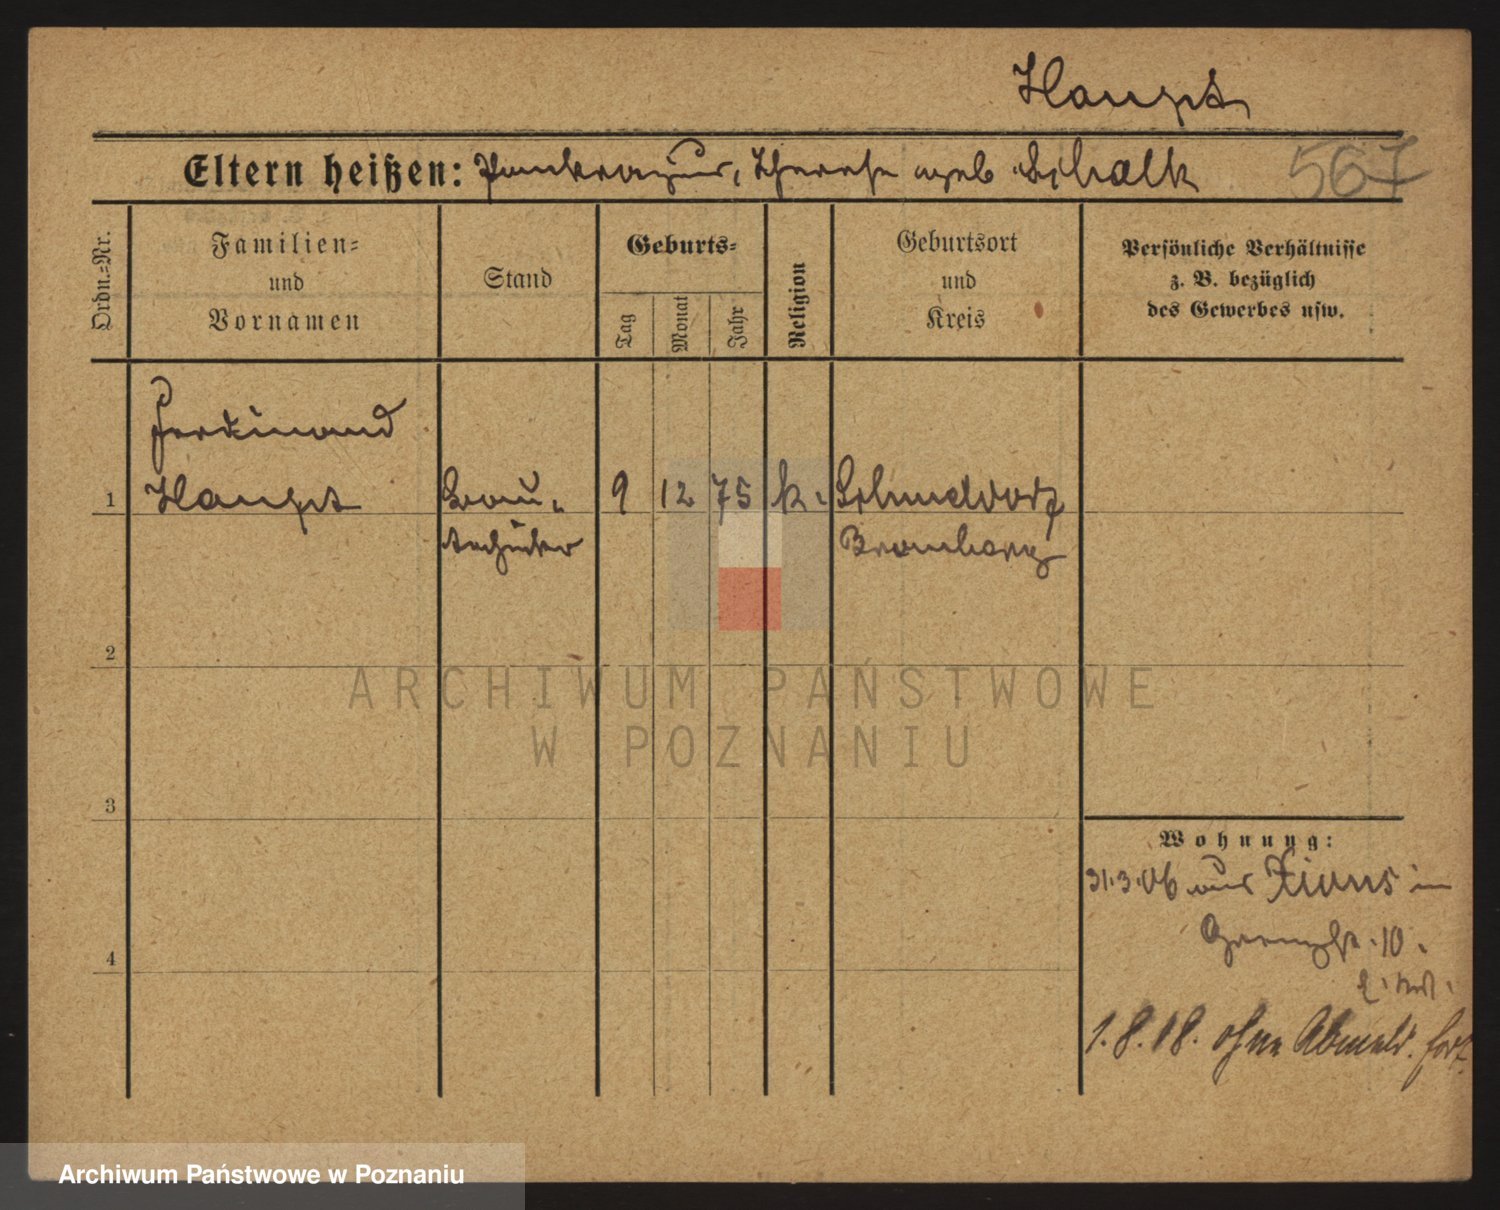 Haupt
Eltern heißen: Pankrazius, Therese geb Schalk
567
Ordn.-Nr.
Familien-
und
Vornamen
Stand
Geburts-
Tag
Monat
Jahr
Religion
Geburtsort
und
Kreis
Persönliche Verhältnisse
z. B. bezüglich
des Gewerbes usw.
Ferdinand
1 Haupt Bau- 9 12 75 k.
techniker Bromberg
2
3
4
Wohnung:
31.3.06 aus Xions in
10.
1.8.18. ohne Abmeld. fort
ARCHIWUM PAŃSTWOWE
W POZNANIU
Archiwum Państwowe w Poznaniu